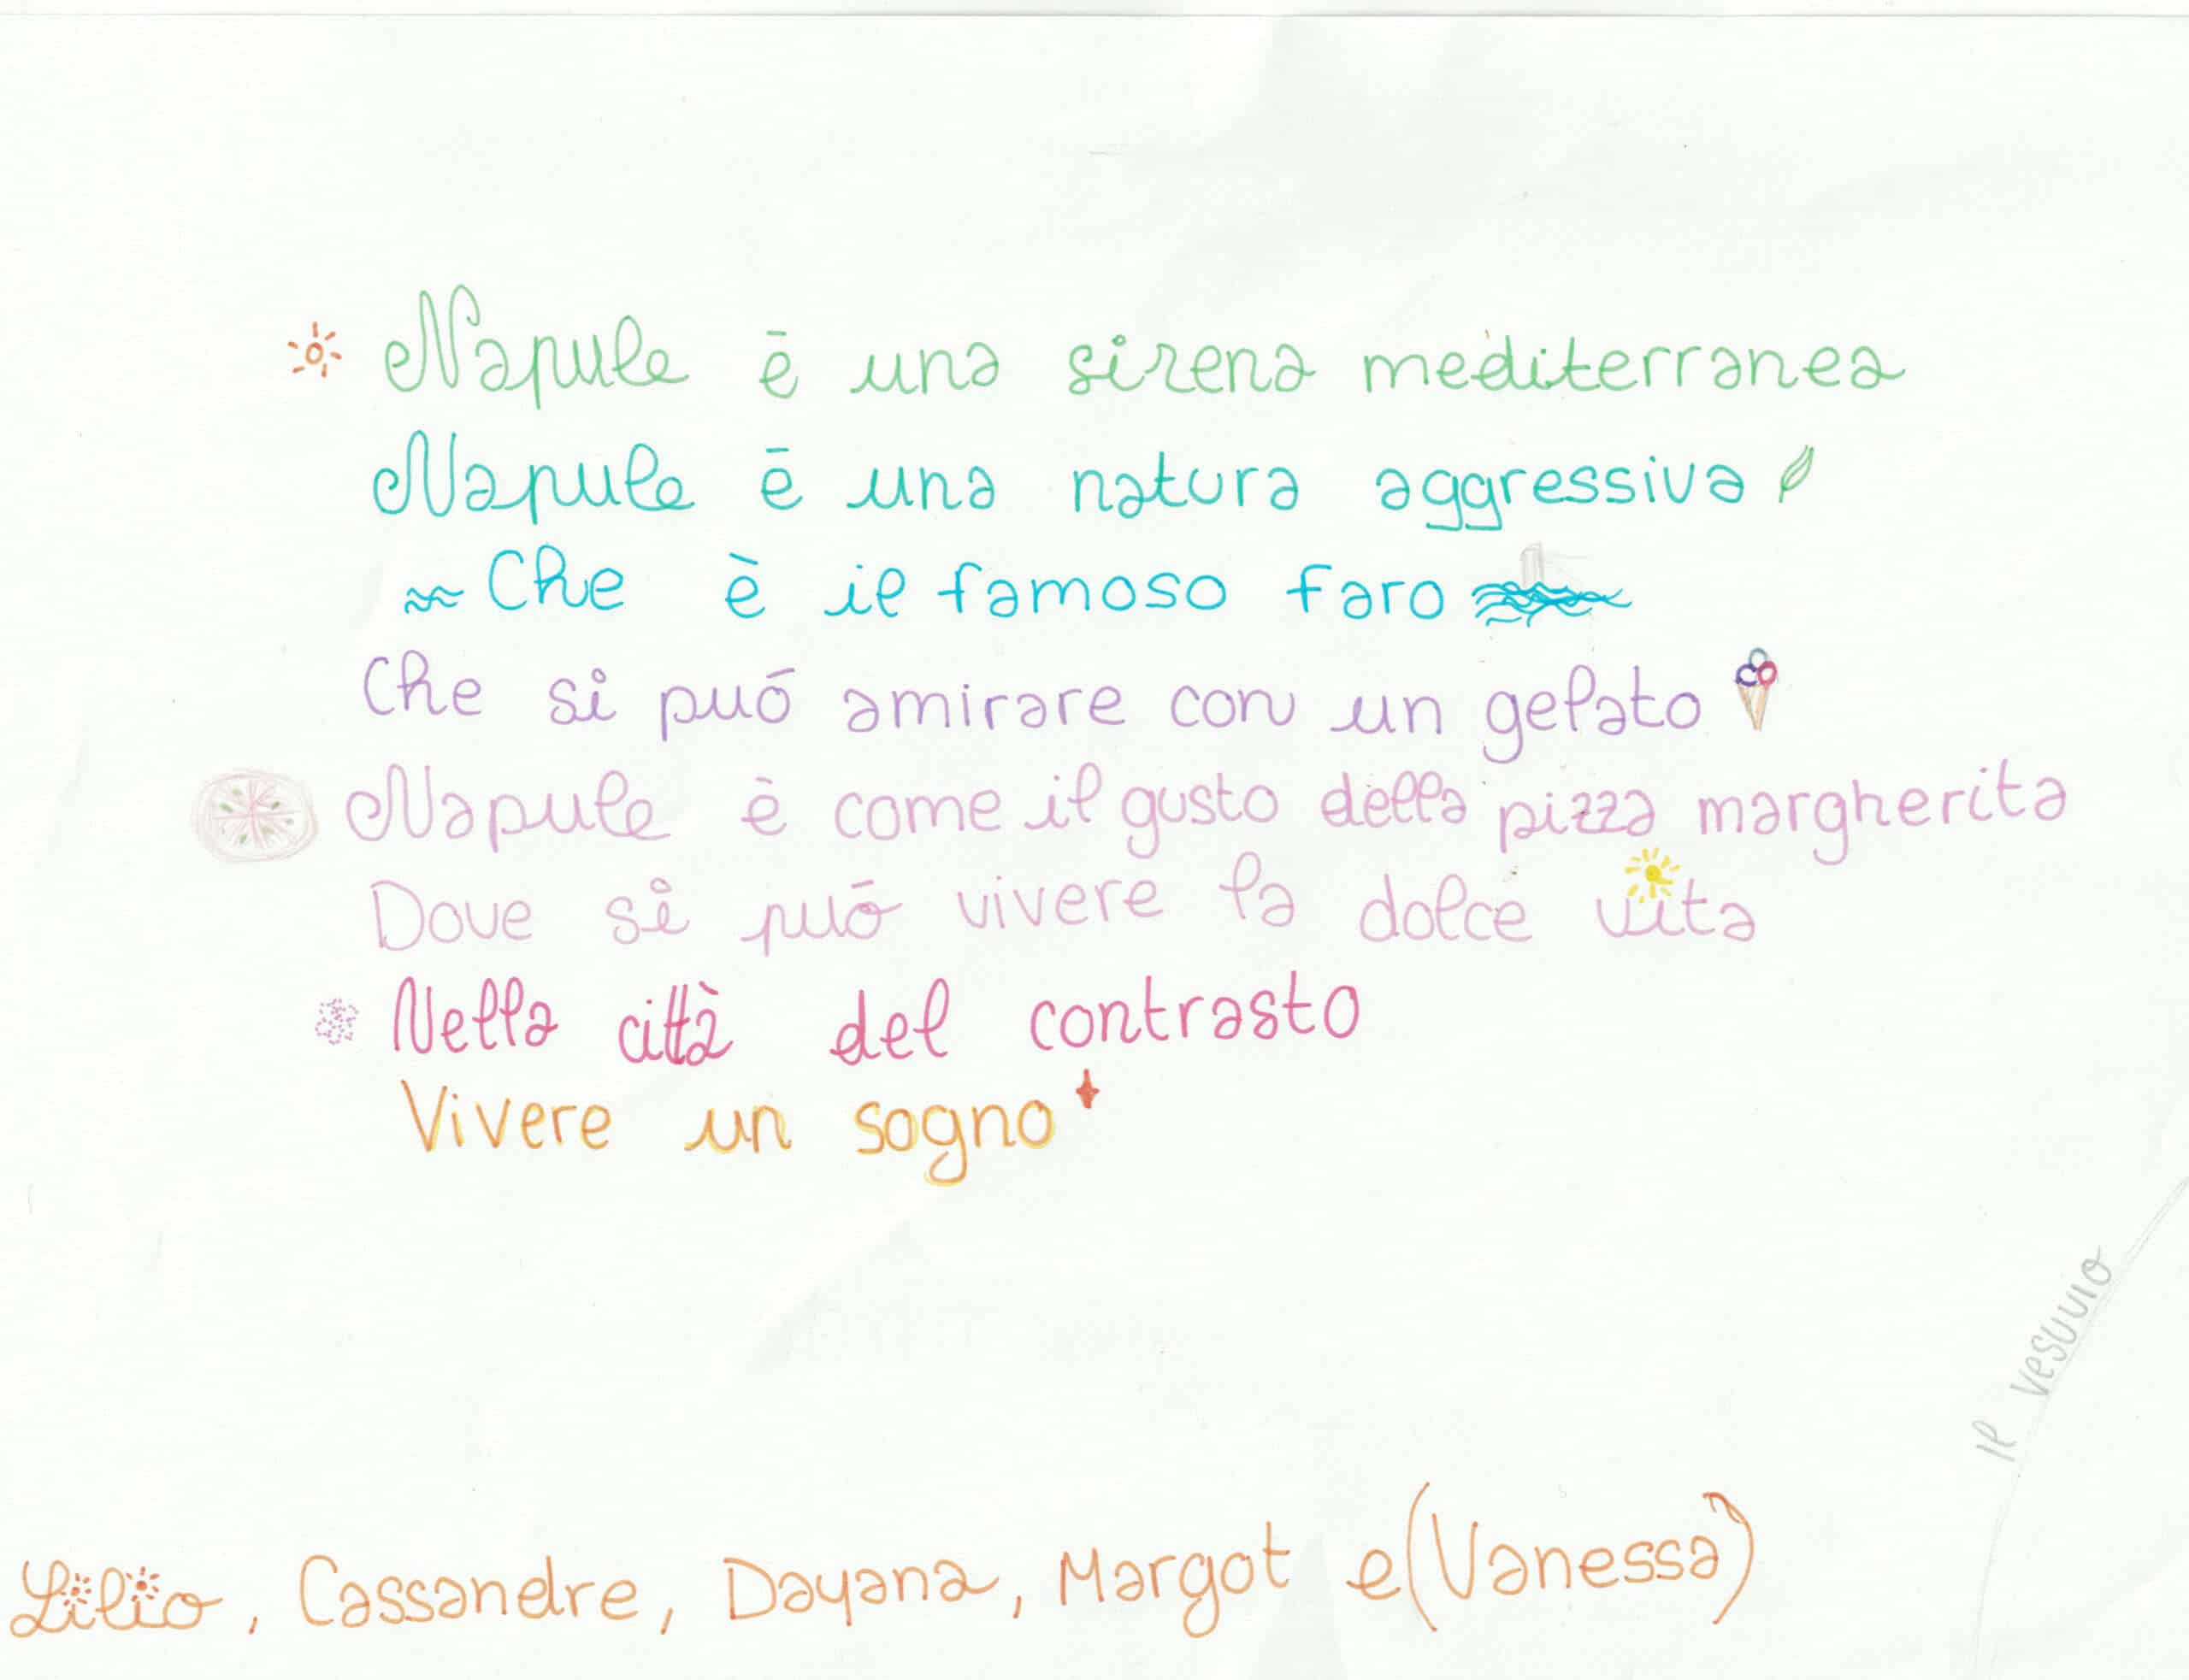 Napule ē una sirena mediterranea
Napule ē una natura aggressiva
Che è il famoso faro
Che si puó amirare con un gelato
Napule è come il gusto della pizza margherita
Dove si puō vivere la dolce vita
Nella città del contrasto
Vivere un sogno
Il vesuvio
Lilio, Cassandre, Dayana, Margot e (Vanessa)